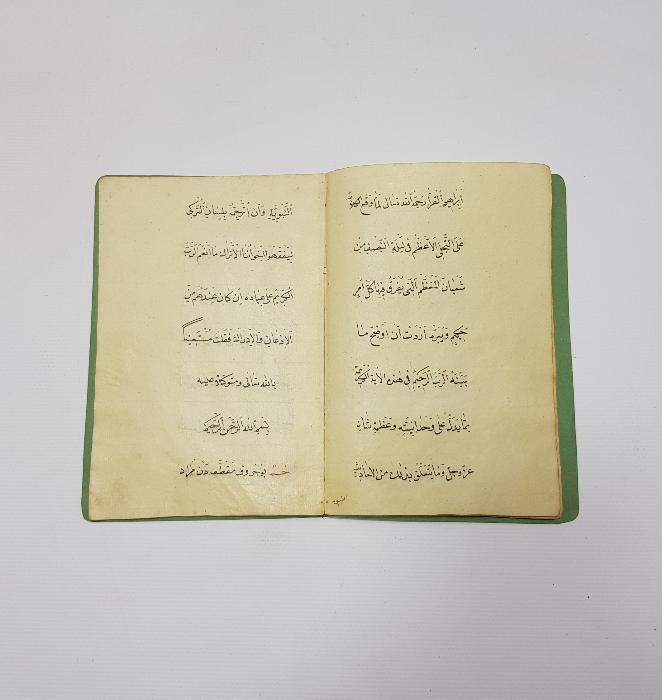 ابراهيم القرا رحمه الله تعالى لما وقع
على التجلى الاعظم فى ليلة النصف من
شعبان المعظم التى يفرق فيها كل امر
حكيم ويبرم اردت ان اوضح ما
بينه الرب الرحيم فى هذه الاية الكريمة
مما يدل على وحدانيته وعظمة شانه
عز وجل وما يتعلق بذلك من الاحاديث
النبوية
النبوية وان اترجمه بلسان التركى
ليفقهوا اخواننا الاتراك ما انعم الرب
الكريم على عباده ان كان عندهم من
الاذعان والادراك فقلت مستعينا
بالله تعالى ومتوكلا عليه
بسم الله الرحمن الرحيم
حم بو حروف مقطعه دن مراد